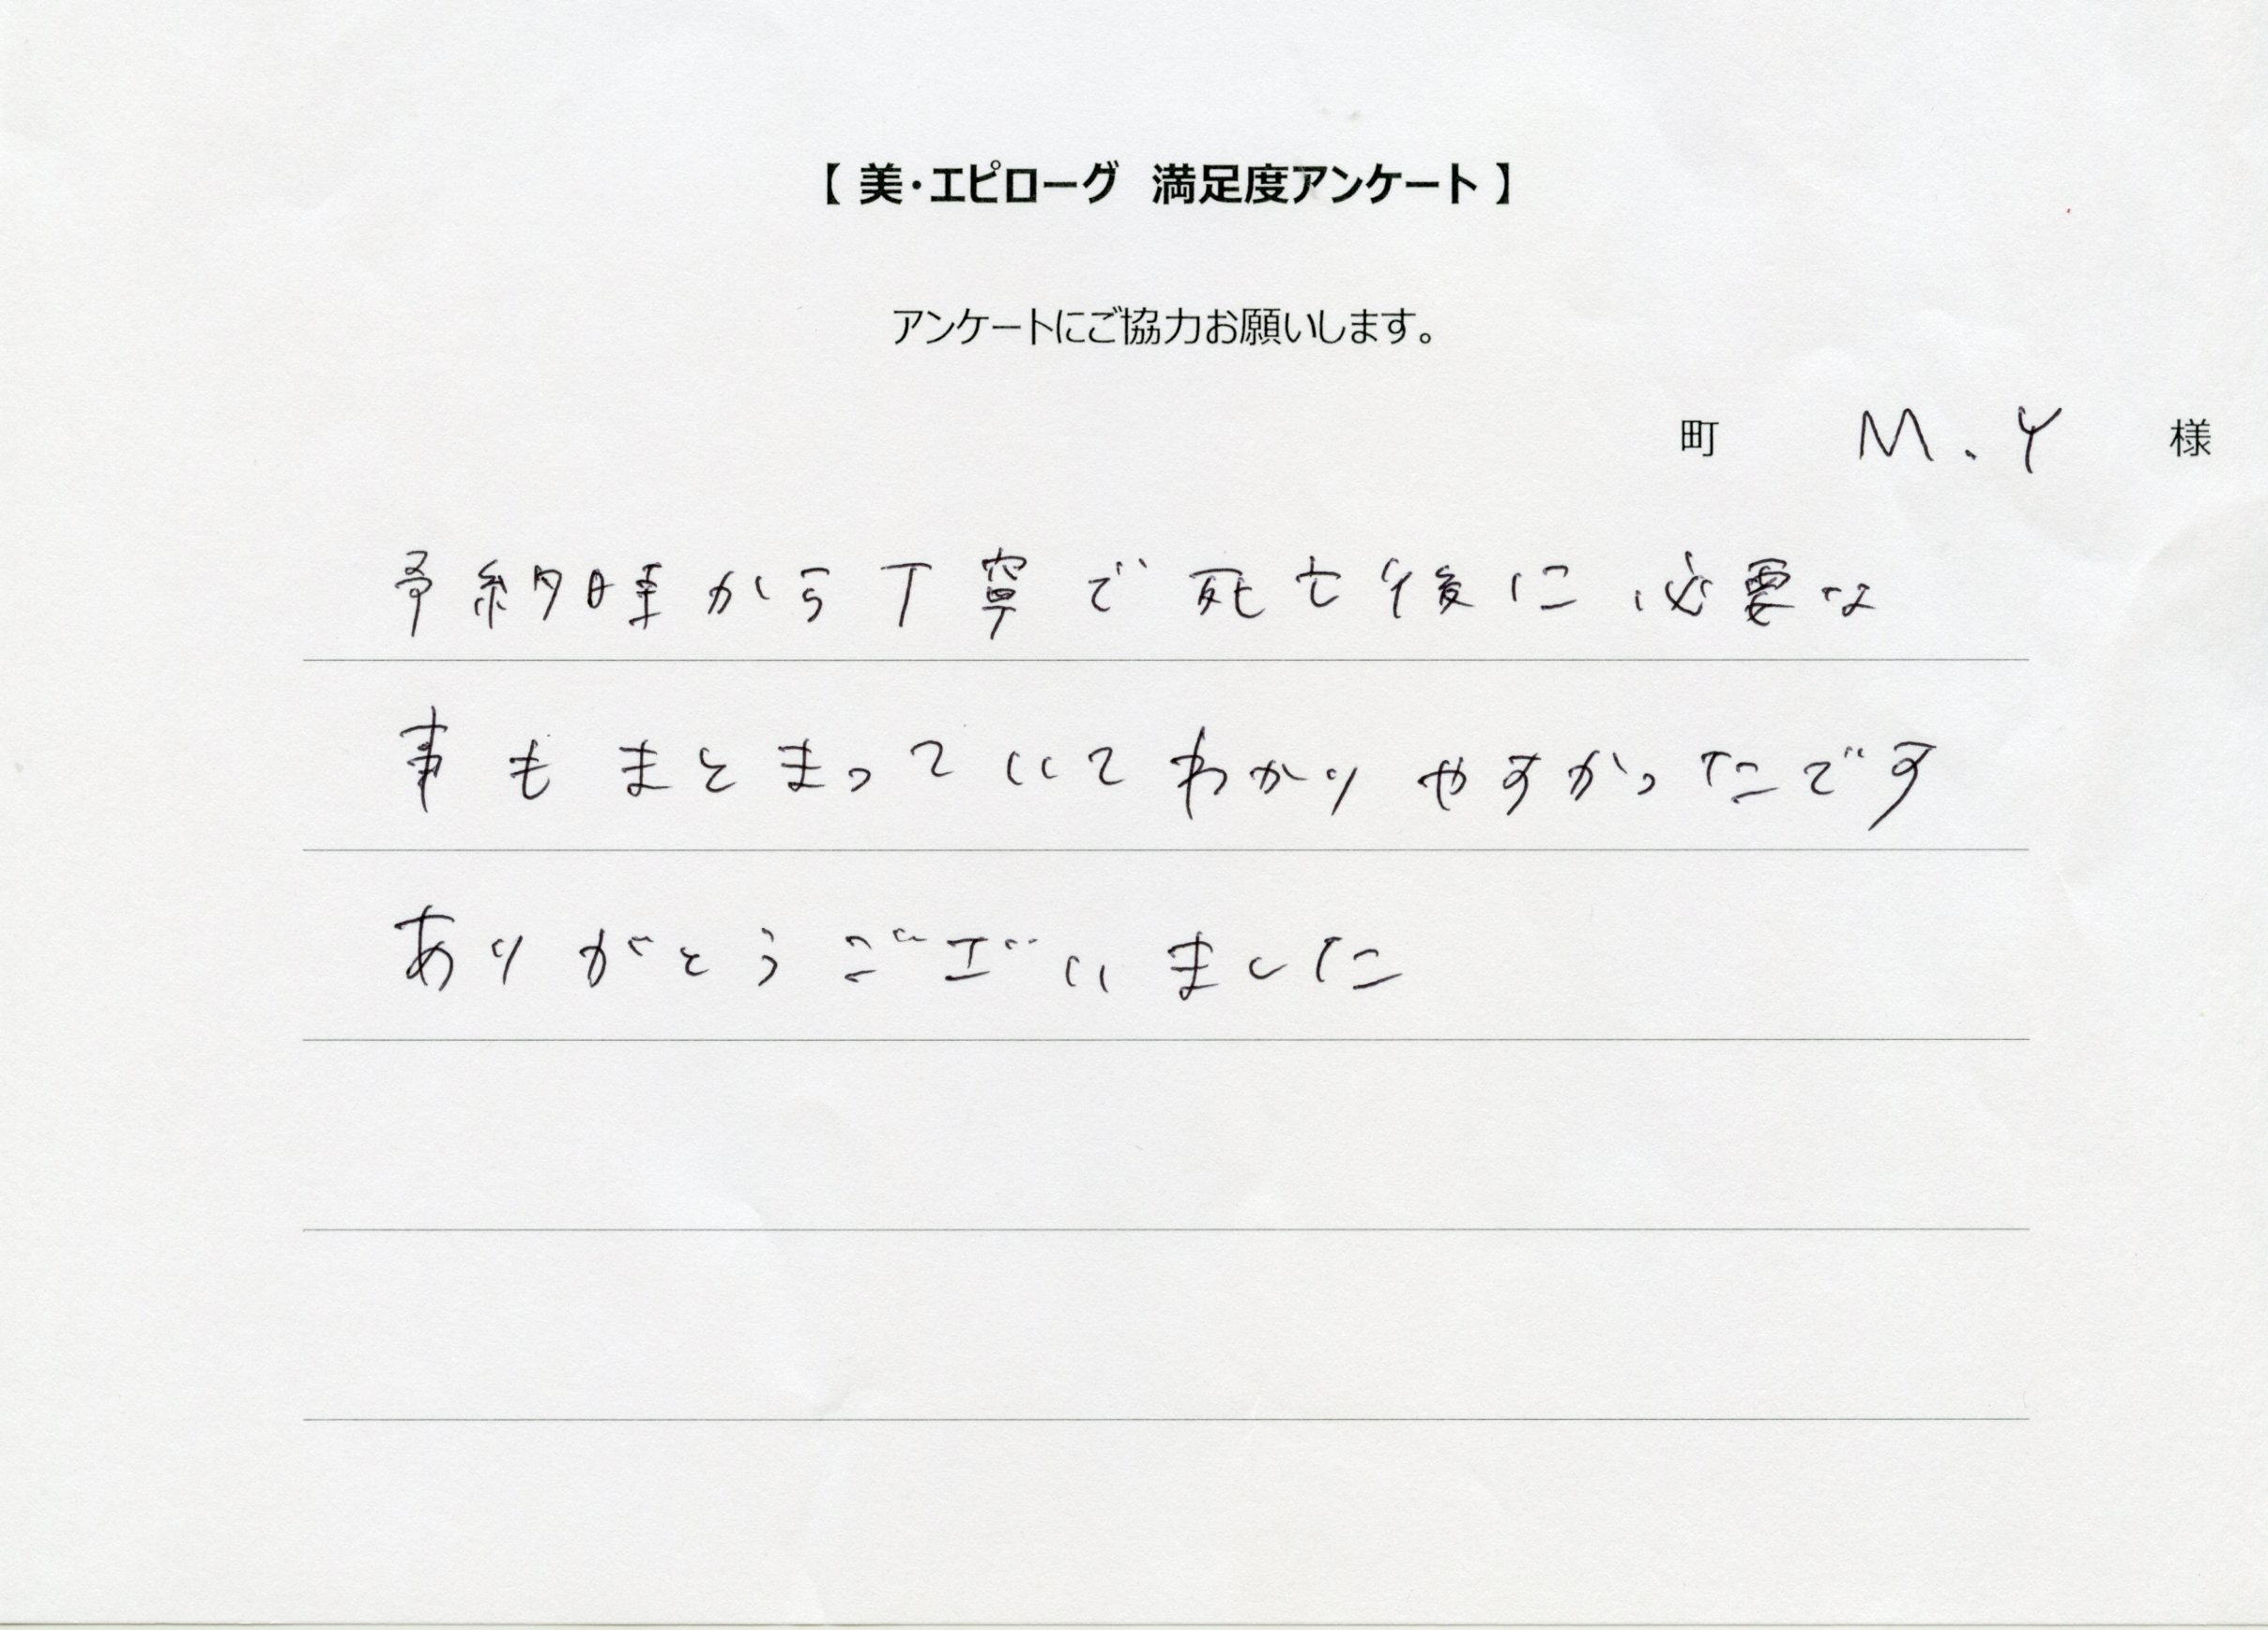 【 美・エピローグ 満足度アンケート 】
アンケートにご協力お願いします。
町 M.Y 様
予約時から丁寧で死亡後に必要な
事もまとまっていてわかりやすかったです
ありがとうございました